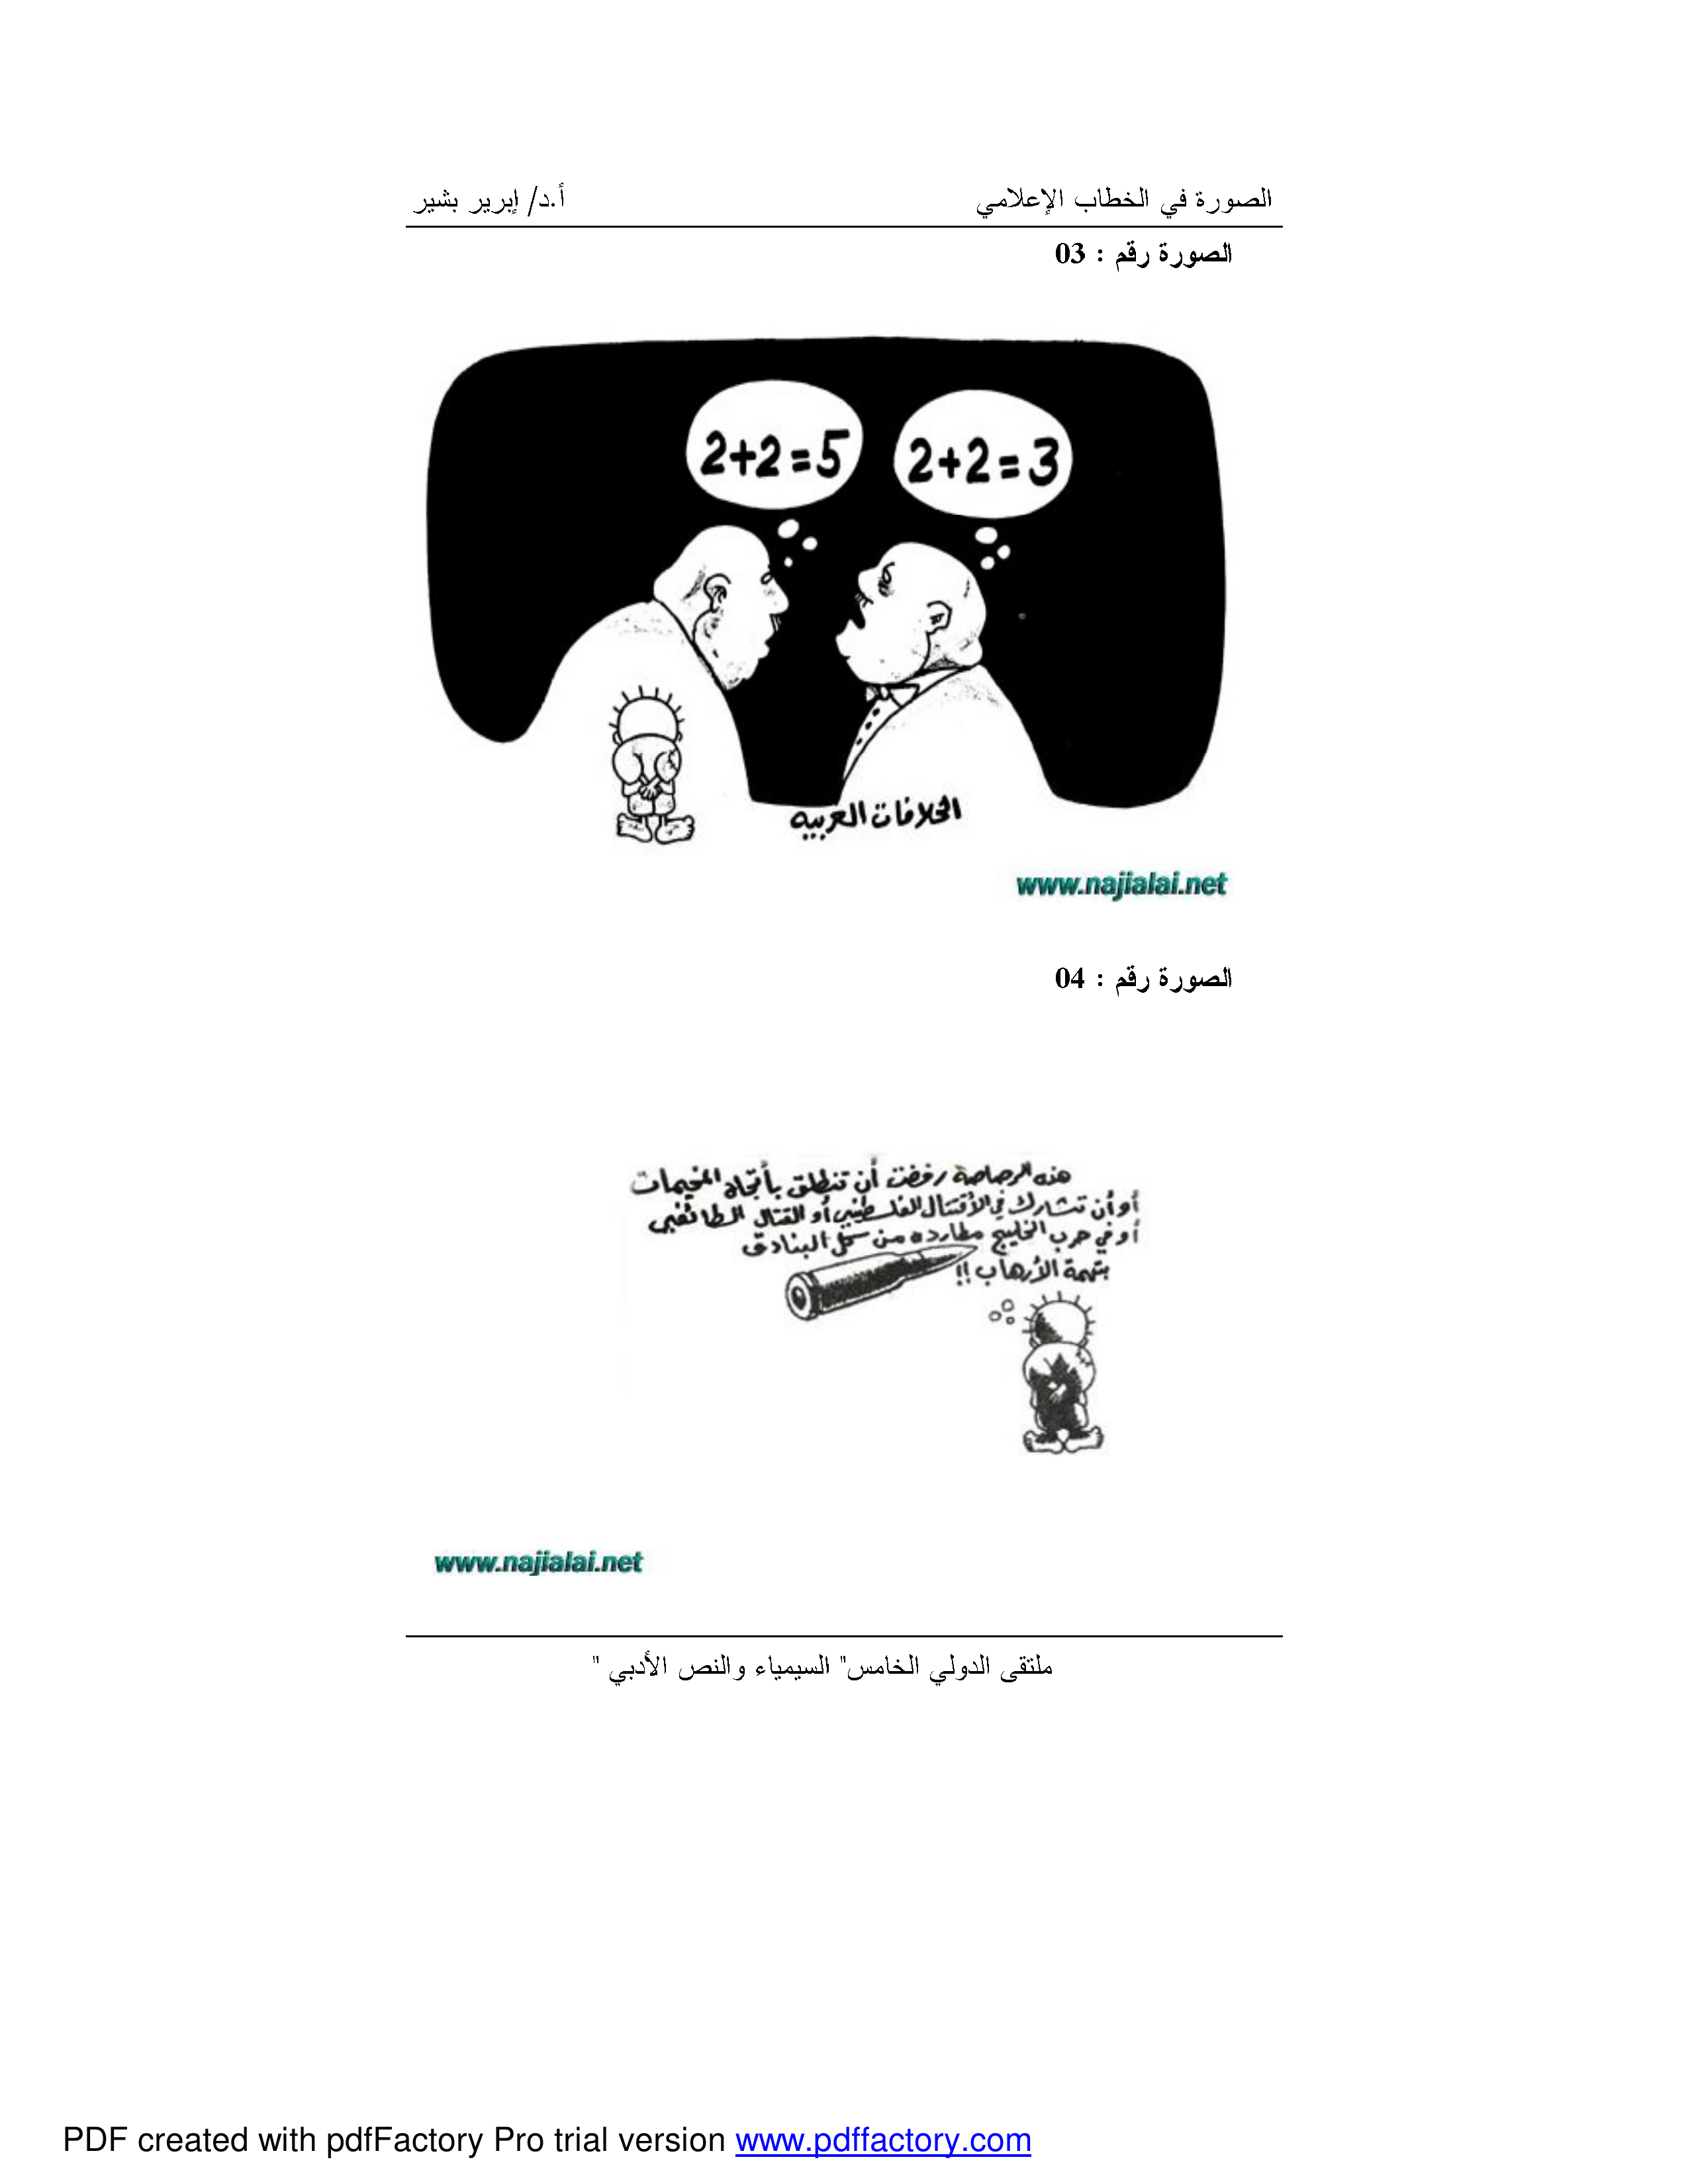 الصورة في الخطاب الإعلامي أ.د/ إبرير بشير
الصورة رقم : 03
2+2=5
2+2=3
الخلافات العربيه
www.najialai.net
الصورة رقم : 04
هذه الرصاصة رفضت أن تنطلق بأتجاه المخيمات
أو أن تشارك في الأقتتال الفلسطيني أو القتال الطائفي
أو في حرب الخليج مطارده من كل البنادق
بتهمة الأرهاب !!
www.najialai.net
ملتقى الدولي الخامس" السيمياء والنص الأدبي "
PDF created with pdfFactory Pro trial version www.pdffactory.com